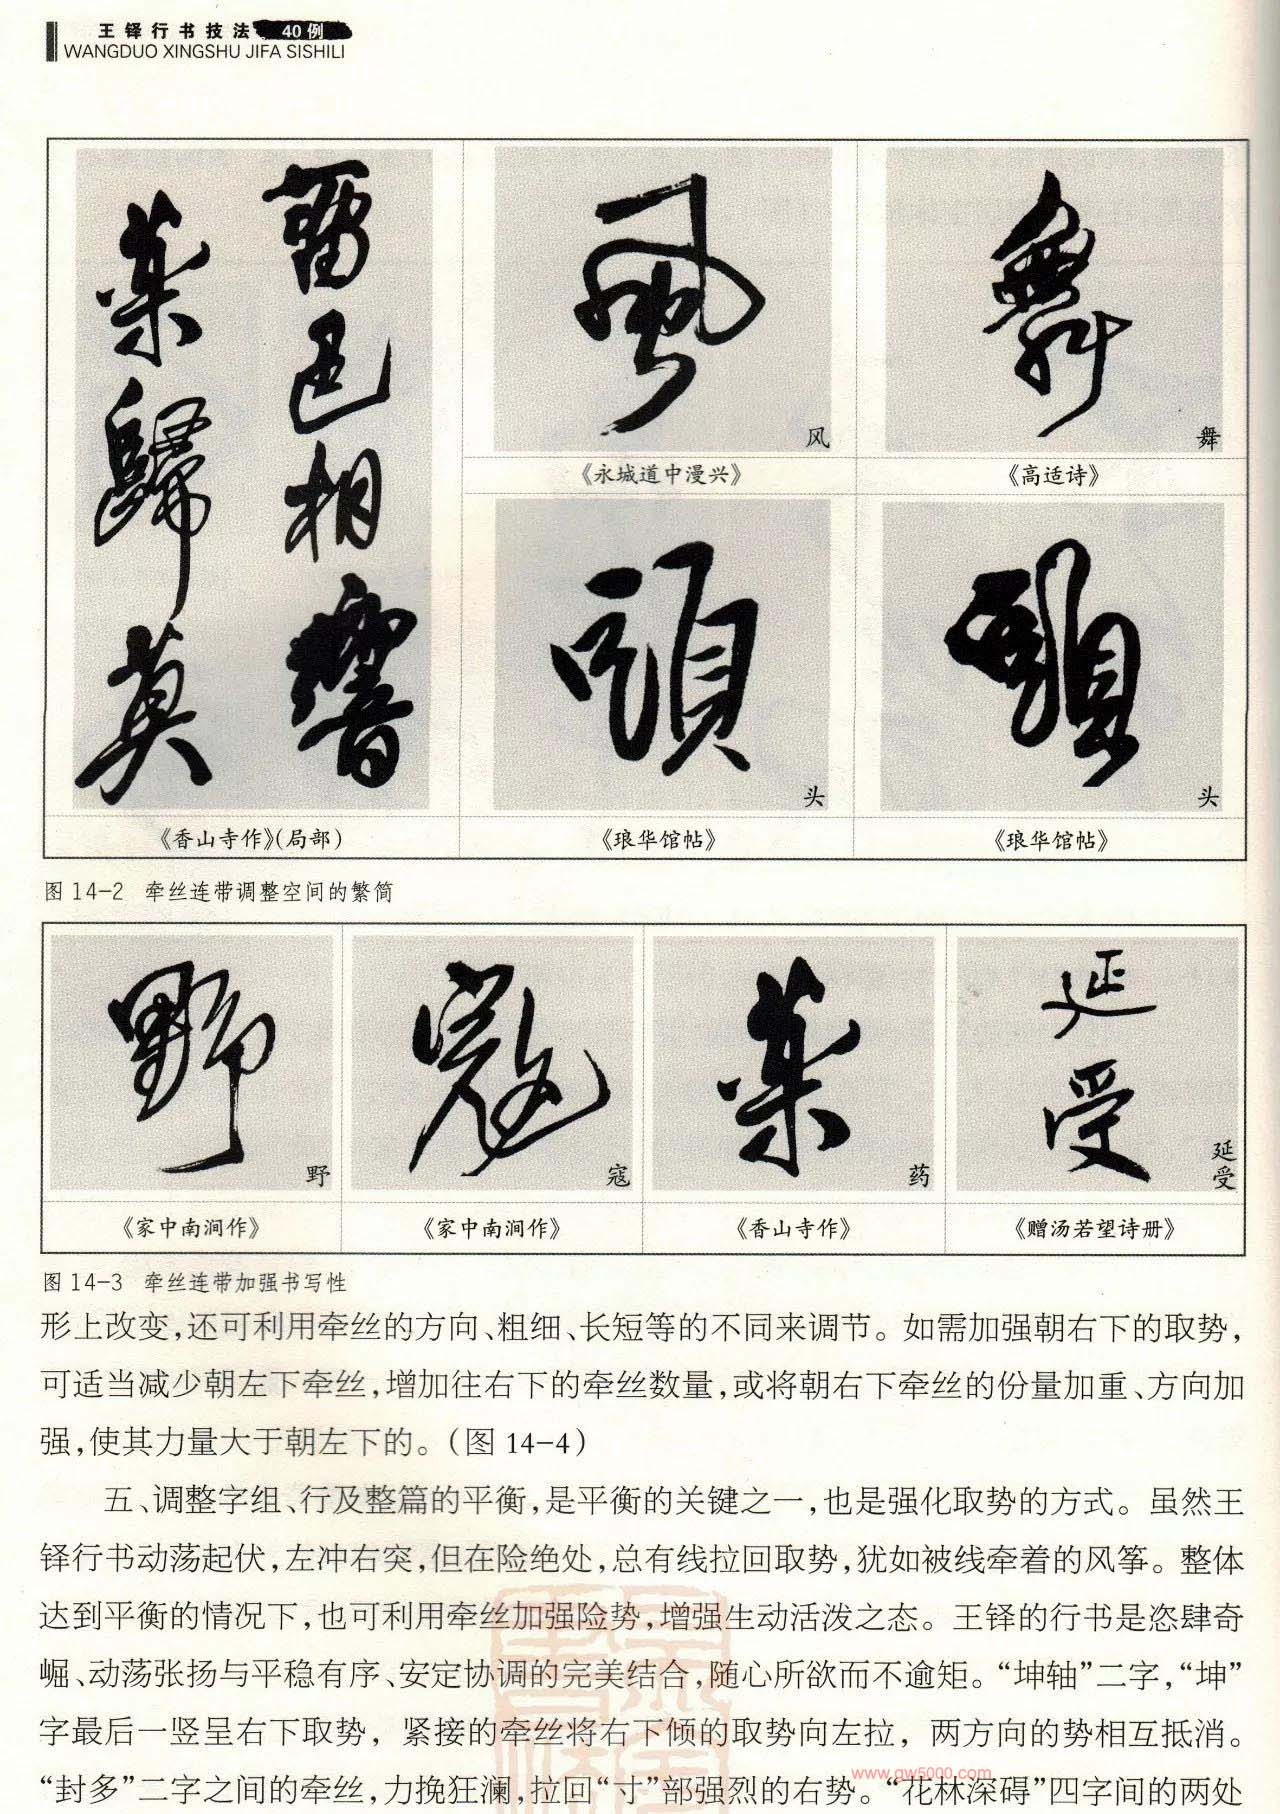 王铎行书技法 40例
WANGDUO XINGSHU JIFA SISHILI
舊邑相響
藥歸莫
《香山寺作》(局部)
風
风
《永城道中漫兴》
舞
舞
《高适诗》
頭
头
《琅华馆帖》
頭
头
《琅华馆帖》
图 14-2 牵丝连带调整空间的繁简
野
野
《家中南涧作》
寇
寇
《家中南涧作》
藥
药
《香山寺作》
延受
延受
《赠汤若望诗册》
图 14-3 牵丝连带加强书写性
形上改变,还可利用牵丝的方向、粗细、长短等的不同来调节。如需加强朝右下的取势,
可适当减少朝左下牵丝,增加往右下的牵丝数量,或将朝右下牵丝的份量加重、方向加
强,使其力量大于朝左下的。(图 14-4)
五、调整字组、行及整篇的平衡,是平衡的关键之一,也是强化取势的方式。虽然王
铎行书动荡起伏,左冲右突,但在险绝处,总有线拉回取势,犹如被线牵着的风筝。整体
达到平衡的情况下,也可利用牵丝加强险势,增强生动活泼之态。王铎的行书是恣肆奇
崛、动荡张扬与平稳有序、安定协调的完美结合,随心所欲而不逾矩。“坤轴”二字,“坤”
字最后一竖呈右下取势,紧接的牵丝将右下倾的取势向左拉,两方向的势相互抵消。
“封多”二字之间的牵丝,力挽狂澜,拉回“寸”部强烈的右势。“花林深碍”四字间的两处
www.gw5000.com